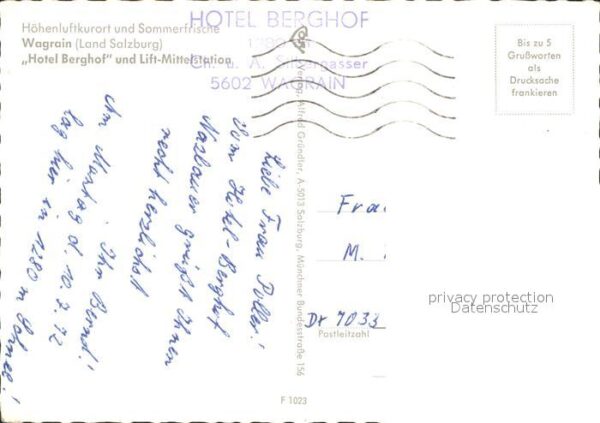 Höhenluftkurort und Sommerfrische
Wagrain (Land Salzburg)
„Hotel Berghof" und Lift-Mittelstation
HOTEL BERGHOF
5602 WAGRAIN
Bis zu 5
Grußworten
als
Drucksache
frankieren
Verlag Alfred Gründler, A 5013 Salzburg, Münchner Bundesstraße 156
Liebe Frau
Vom Hotel-Berghof
grüßt Ihnen
recht herzlichst
Ihr Bernd!
Am Montag d. 10.2.72
lag hier in 1280 m Schnee!
Frau
M.
7033
Postleitzahl
privacy protection
Datenschutz
F 1023